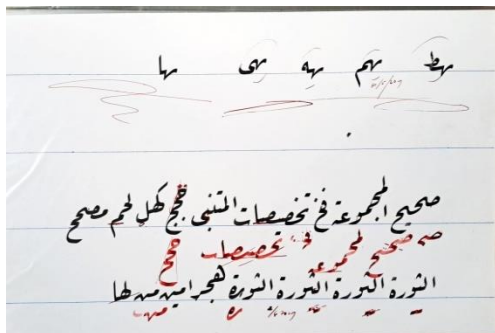 هط هم هه هى ها
صحيح المجموعة في تخصصات المتنبى حجج كهل لحم مصحح
صحيح لمجموعة تخصصات حجج
الثورة الثورة الثورة الثورة هجر امين من لها